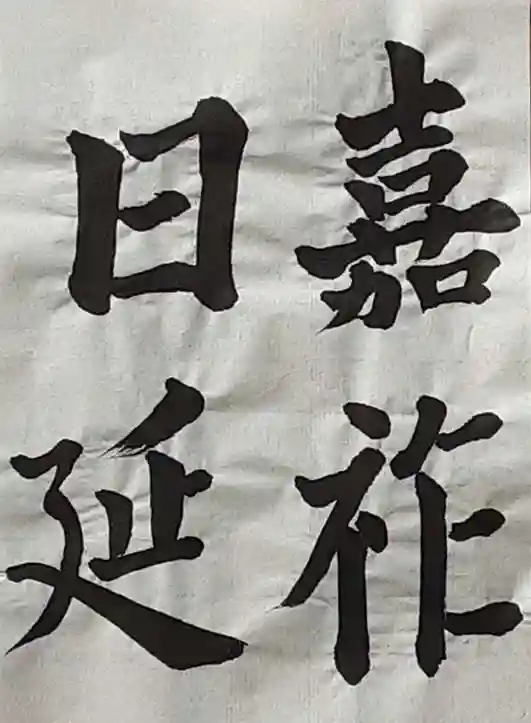 嘉祚
日延